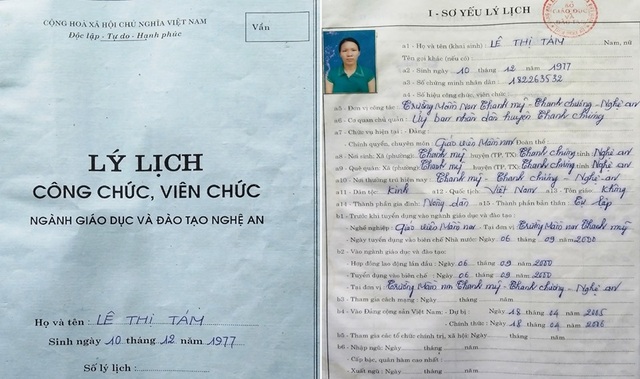 CỘNG HOÀ XÃ HỘI CHỦ NGHĨA VIỆT NAM
Độc lập - Tự do - Hạnh phúc
Vần
LÝ LỊCH
CÔNG CHỨC, VIÊN CHỨC
NGÀNH GIÁO DỤC VÀ ĐÀO TẠO NGHỆ AN
Họ và tên : LÊ THỊ TÁM
Sinh ngày 10 tháng 12 năm 1977
Số lý lịch :
I - SƠ YẾU LÝ LỊCH
SỞ
GIÁO DỤC
VÀ
a1 - Họ và tên (khai sinh) : LÊ THỊ TÁM Nam, nữ
Tên gọi khác (nếu có)
a2 - Sinh ngày 10 tháng 12 năm 1977
a3 - Số chứng minh nhân dân : 182263532
a4 - Số hiệu công chức, viên chức
a5 - Đơn vị công tác Trường Mầm Non Thanh mỹ - Thanh chương - Nghệ an
a6 - Cơ quan chủ quản : Uỷ ban nhân dân huyện Thanh chương
a7 - Chức vụ hiện tại : - Đảng
- Chính quyền, chuyên môn Giáo viên Mầm non Đoàn thể
a8 - Nơi sinh: Xã (phường) Thanh mỹ huyện (TP, TX) Thanh chương tỉnh Nghệ an
a9 - Quê quán: Xã (phường) Thanh mỹ huyện (TP, TX) Thanh chương tỉnh Nghệ an
a10 - Nơi thường trú hiện nay Thanh mỹ - Thanh chương - Nghệ an
a11 - Dân tộc: Kinh a12 - Quốc tịch : Việt Nam a13 - Tôn giáo: Không
a14 - Thành phần gia đình: Nông dân a15 - Thành phần bản thân: Tự lập
b1 - Trước khi tuyển dụng vào ngành giáo dục và đào tạo:
Nghề nghiệp: Giáo viên Mầm non - Tại đơn vị Trường Mầm Non Thanh mỹ
Ngày tuyển dụng vào biên chế Nhà nước: Ngày 06 tháng 09 năm 2000
b2 - Vào ngành giáo dục và đào tạo:
- Hợp đồng lao động lần đầu : Ngày 06 tháng 09 năm 2000
- Tuyển dụng vào biên chế : Ngày 06 tháng 09 năm 2000
Tại đơn vị Trường Mầm non Thanh mỹ - Thanh chương - Nghệ an
b3 - Tham gia cách mạng : Ngày tháng năm
b4 - Vào Đảng cộng sản Việt Nam: - Dự bị : Ngày 18 tháng 04 năm 2005
- Chính thức : Ngày 18 tháng 04 năm 2006
b5 - Tham gia các tổ chức chính trị, xã hội : Ngày tháng năm
b6 - Nhập ngũ : Ngày tháng năm
- Cấp bậc, quân hàm cao nhất :
- Xuất ngũ : Ngày tháng năm